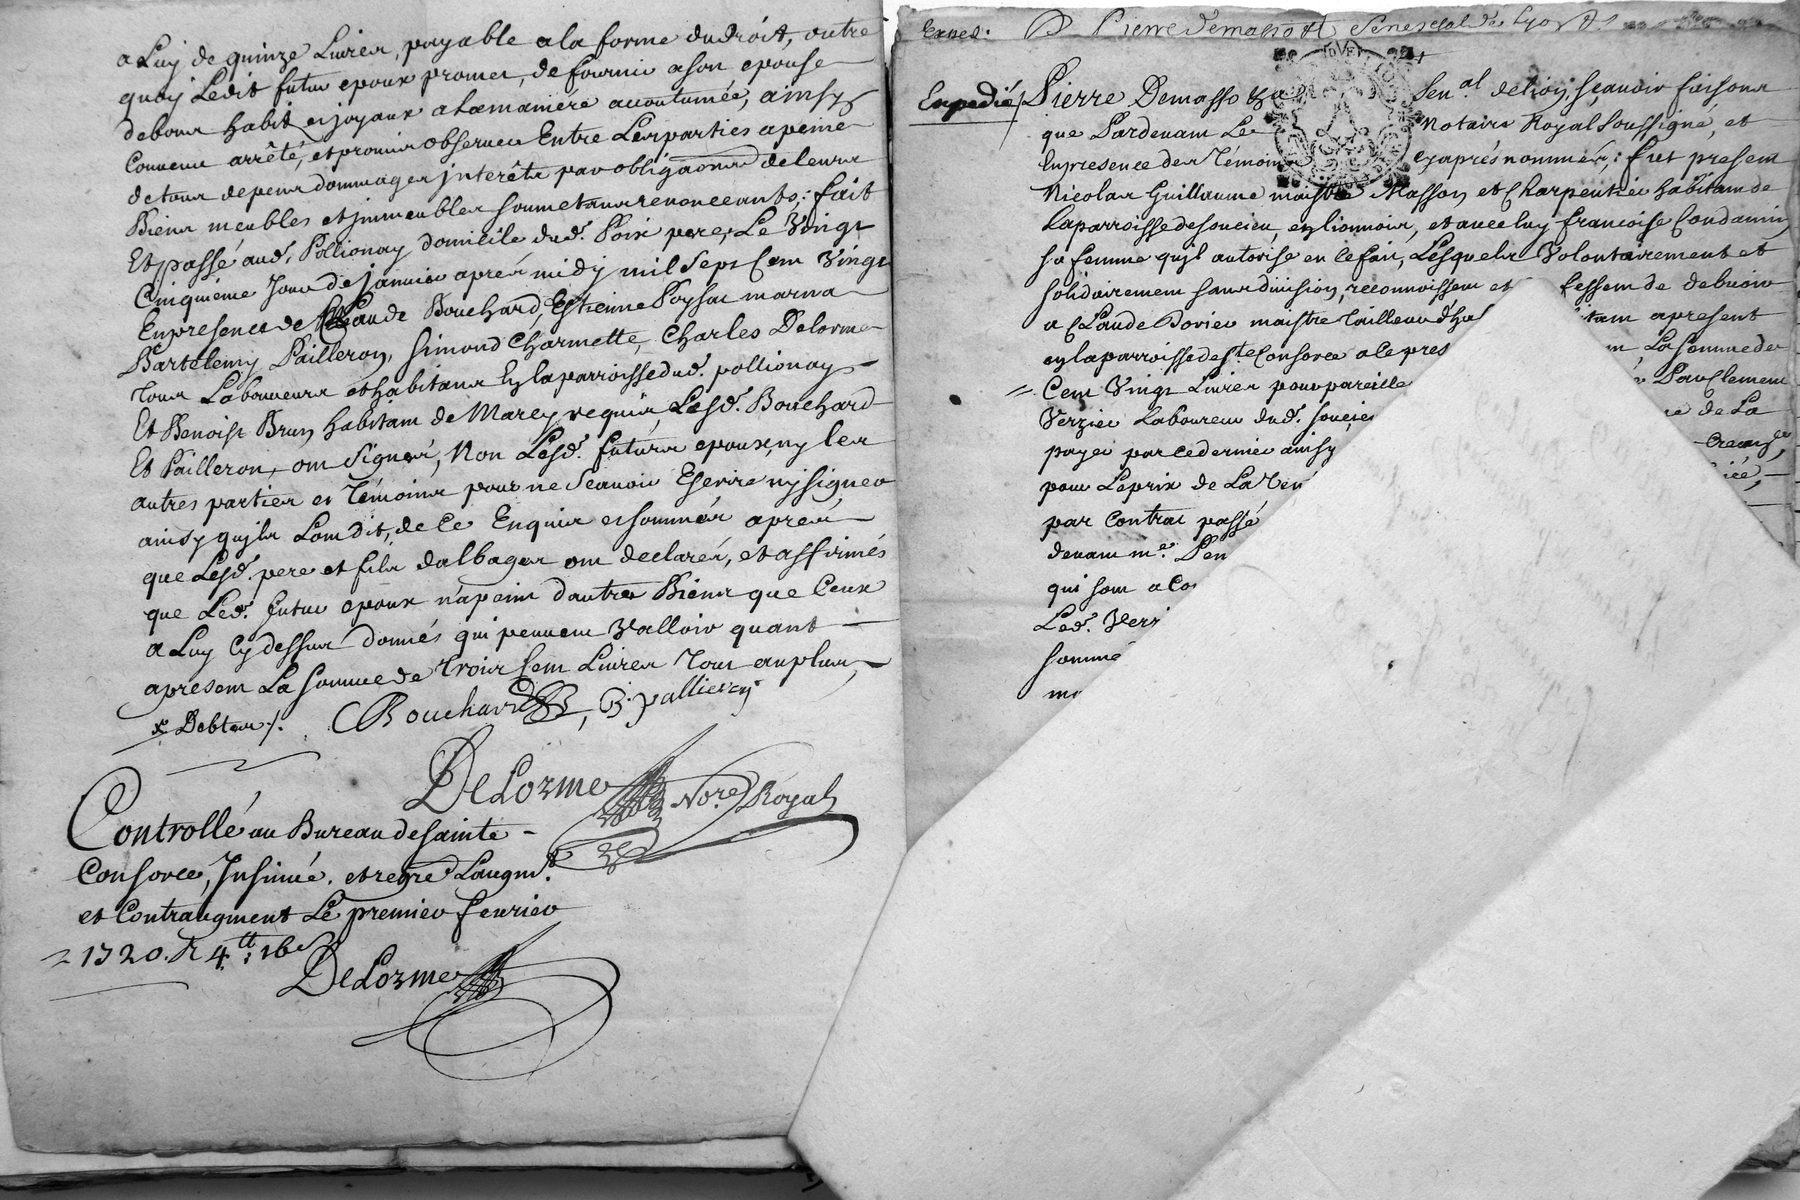 a Luy de quinze Livres, payable a la forme du droit, outre
quoy Ledit futur epoux promet, de fournir a son epouse
de bons habit et joyaux a la maniére accoutumée, ainsy
Convenu arrété, et promis observer Entre Les parties a peine
de tous depens dommages interêts par obligaõns de leurs
Biens meubles et jmmeubles soumetans renonceants; fait
Et passé aud. Pollionay domicile dud. Poix pere, Le Vingt
Cinquiéme Jour de janvier aprés midy mil Sept Cent Vingt
En presence de Claude Bouchard, Estienne Poysat marna
Bartelemy Pailleron, Simond Charmette, Charles Delorme
Tous Laboureurs et habitans En la parroisse dud. pollionay
Et Benoist Brun habitant de Marcy requis, Lesd. Bouchard
Et Pailleron, ont Signés, Non Lesd. futurs epoux, ny les
autres parties et Témoins pour ne Scavoir Escrire ny signer
ainsy qu'jls L'ont dit, de Ce Enquis et sommés aprés
que Lesd. pere et fils dalbages ont declarés, et affirmés
que Led. futur epoux n'a point d'autres Biens que Ceux
a Luy Cy dessus donnés qui peuvent Valloir quant
a present La somme de Trois Cent Livres Tout au plus,
x Debteur /. Bouchard, B. pallieron
DeLorme Nore. Royal
Controllé au Bureau de Sainte
Consorce, Insinué, et regré L'augmt.
et Contraugment Le premier fevrier
1720. R 4tt: 16s
DeLorme
Exped. P Pierre Demasso &tt Senesclal de Lyon
Expedié / Pierre Demasso Sen.al de Lion, sçavoir faisons
que Pardevant Le Notaire Royal Soussigné, et
En presence des Témoins cy aprés nommés; fut present
Nicolas Guillaume maistre Masson et Charpentier habitant de
La parroisse de Soucieu, en lionnois, et avec luy francoise Condamin,
sa femme qu'jl autorise en ce fait, Lesquels Volontairement et
solidairement sans division, reconnoissent et fessent de debvoir
a Claude Dovier maistre Tailleur d'ha itant a present
en la parroisse de Ste. Consorce a ce pres nt, La somme de
Cent Vingt Livres pour pareille Par Clement
Verzier Laboureur dud. Soucieu de La
payer par ce dernier ainsy
pour Le prix de La Ven
par Contrat passé
devant me. Pen
qui sont a Co
Led. Verzi
somme
mo